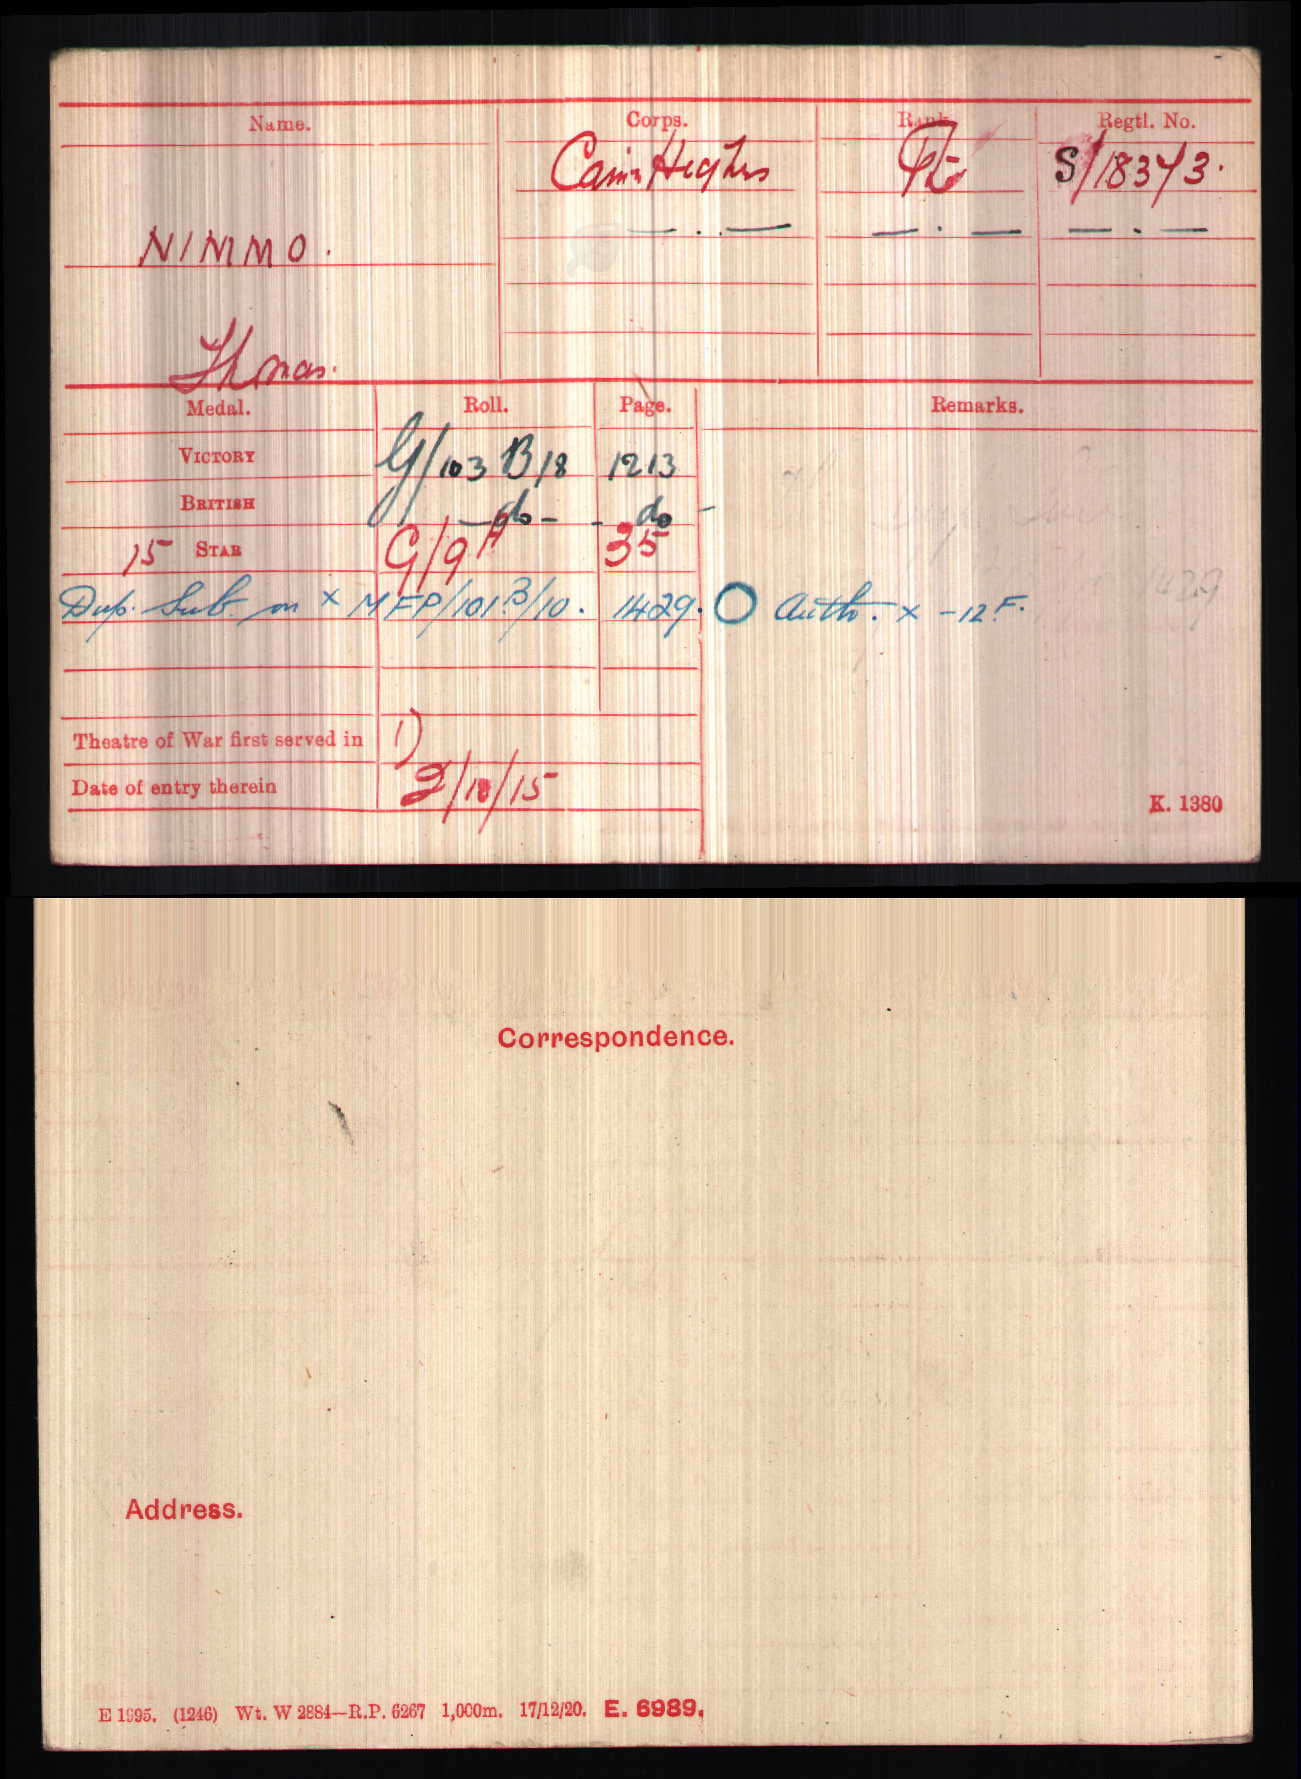 Name. Corps. Rank. Regtl. No.
Cam. Highrs Pte S/18373.
NINMO. — . . — — . — — . —
Thomas.
Medal. Roll. Page. Remarks.
VICTORY G/103 B18 1213
BRITISH — do — - do -
15 STAR G/9A 35
Dup. Sub. on x MFP/101B/10. 1429. O Auth. x -12F.
Theatre of War first served in 1)
Date of entry therein 2/10/15
K. 1380
Correspondence.
Address.
E 1995. (1246) Wt. W 2884—R.P. 6267 1,000m. 17/12/20. E. 6989.